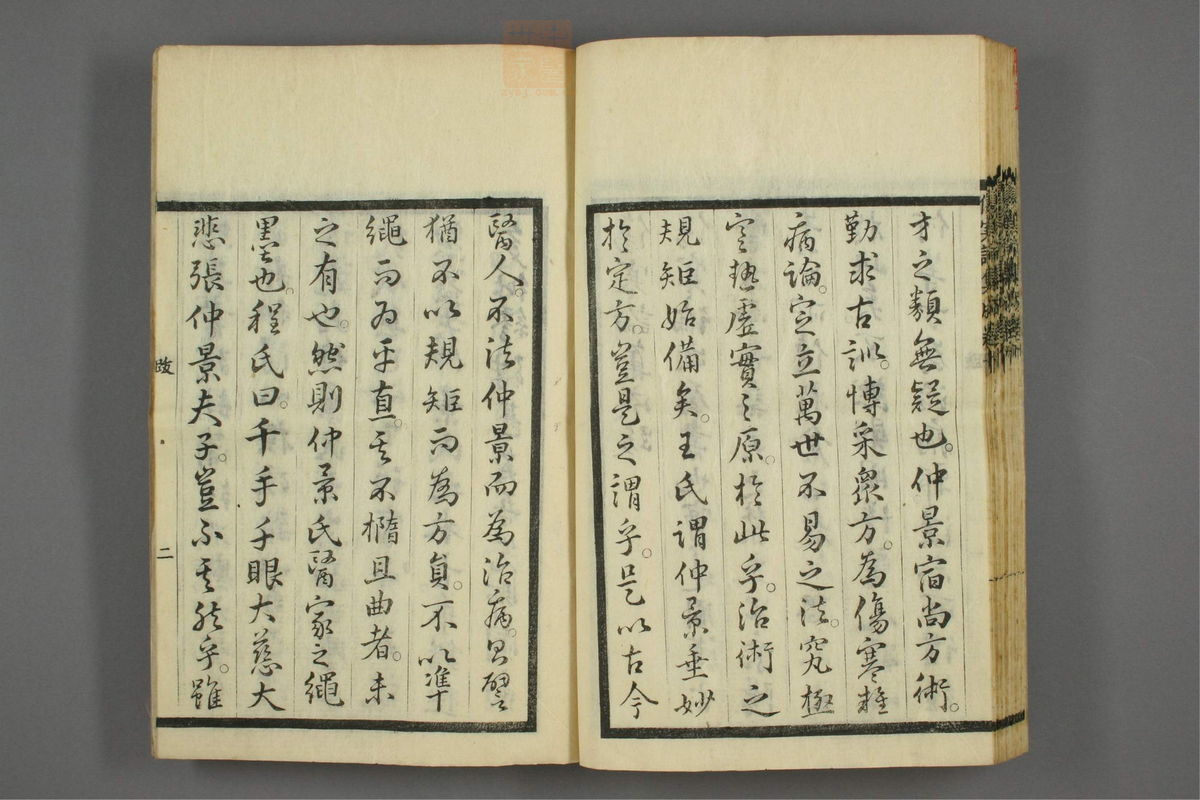 才之類無疑也。仲景宿尚方術。
勤求古訓。博采衆方。為傷寒雜
病論。定立萬世不易之法。究極
寒熱虛實之原。於此乎。治術之
規矩始備矣。王氏謂仲景垂妙
於定方。豈是之謂乎。是以古今
醫人。不法仲景而為治病。譬
猶不以規矩而為方員。不以準
繩而为平直。其不橢且曲者。未
之有也。然則仲景氏醫家之繩
墨也。程氏曰。千手千眼大慈大
悲張仲景夫子。豈不其然乎。雖
跋
二